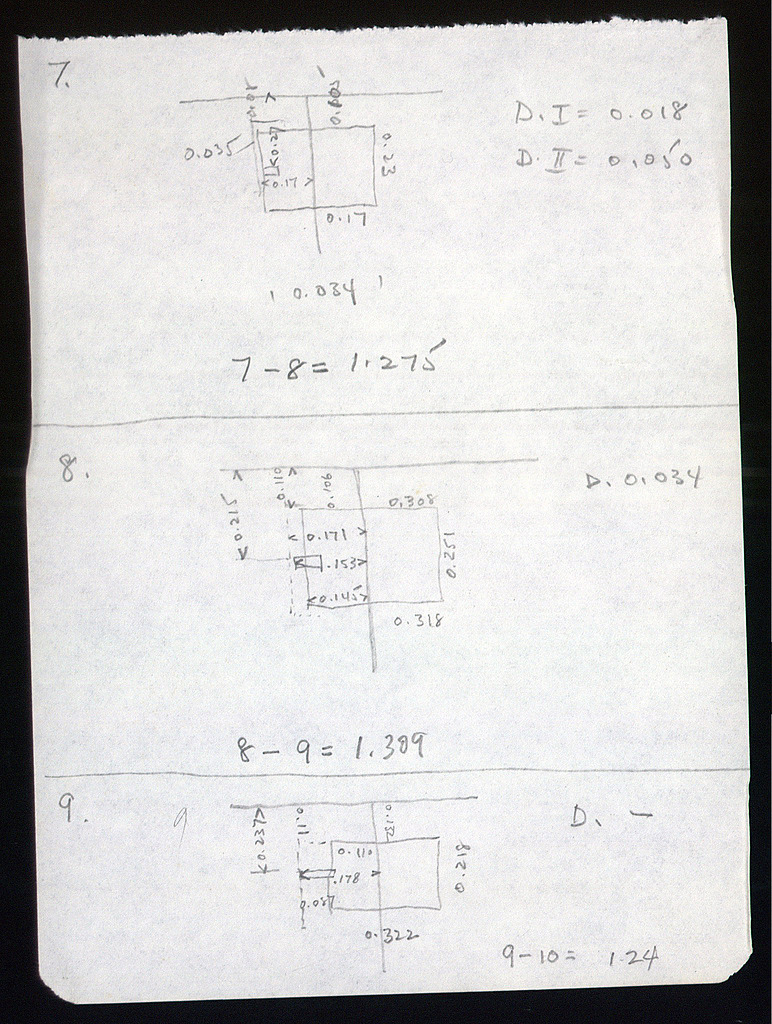 7.
0.005
D. I = 0.018
0.035
0.27
0.23
D. II = 0.050
0.17
0.17
0.034
7 - 8 = 1.275
8.
0.110
0.106
D. 0.034
0.215
0.308
0.171
0.251
.153
0.145
0.318
8 - 9 = 1.309
9.
9
0.237
0.11
0.132
D. -
0.110
0.218
.178
0.087
0.322
9 - 10 = 1.24